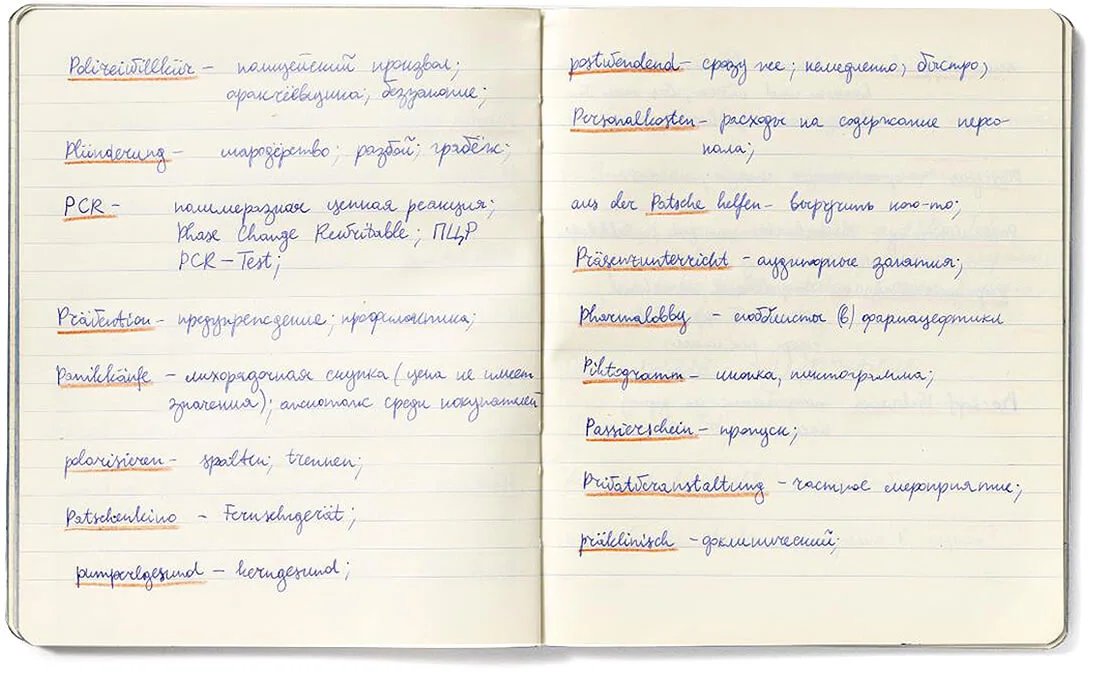 Polizeiwillkür – полицейский произвол;
аракчеевщина; беззаконие;
Plünderung – мародёрство; разбой; грабёж;
PCR – полимеразная цепная реакция;
Phase Change Rewritable; ПЦР
PCR – Test;
Prävention – предупреждение; профилактика;
Panikkäufe – лихорадочная скупка (цена не имеет
значения); ажиотаж среди покупателей
polarisieren – spalten; trennen;
Patschenkino – Fernsehgerät;
pumperlgesund – kerngesund;
postwendend – сразу же; немедленно; быстро;
Personalkosten – расходы на содержание персо-
нала;
aus der Patsche helfen – выручить кого-то;
Präsenzunterricht – аудиторные занятия;
Pharmalobby – лоббисты (в) фармацефтики
Piktogramm – иконка, пиктограмма;
Passierschein – пропуск;
Privatveranstaltung – частное мероприятие;
präklinisch – доклинический;